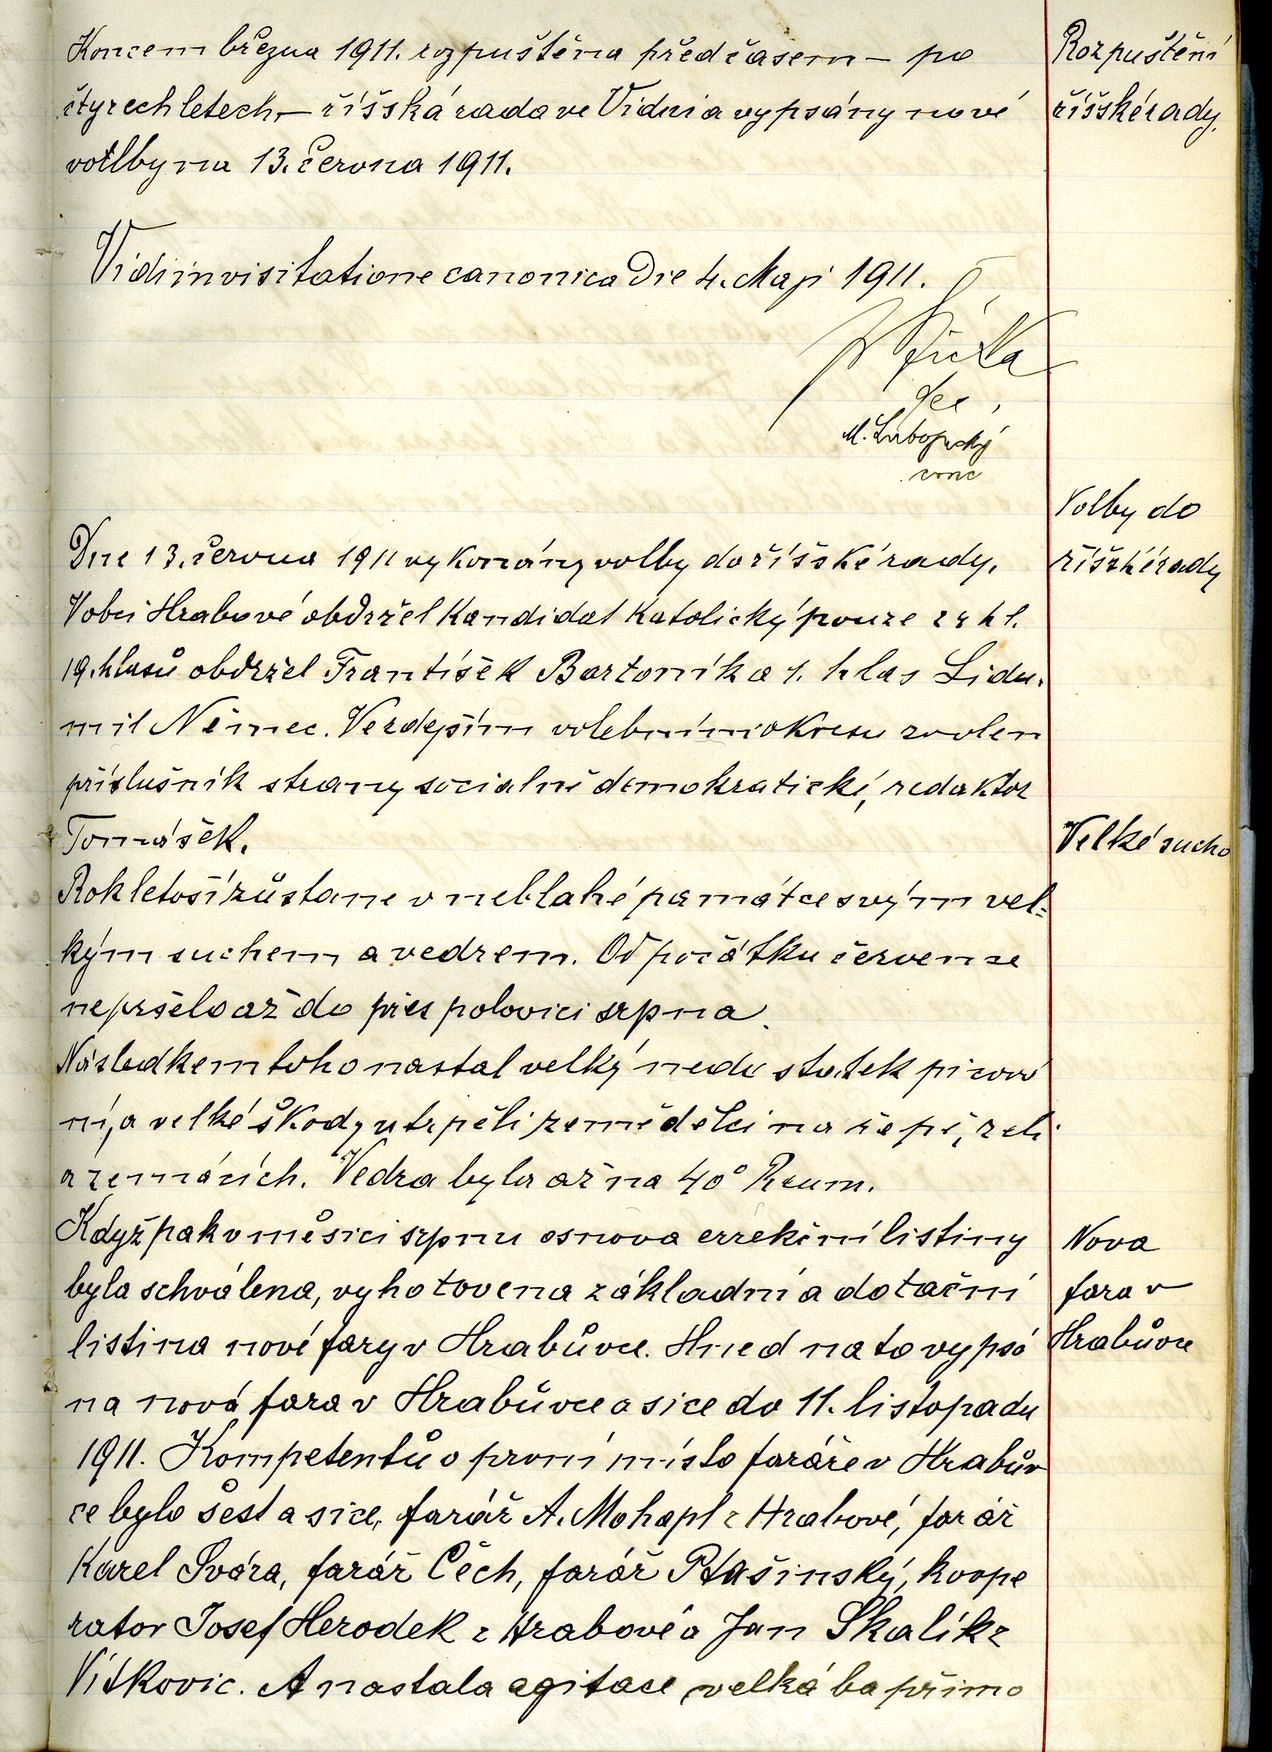 Koncem března 1911. rozpuštěna předčasem – po
Rozpuštění
čtyrech letech, – říšská rada ve Vídni a vypsány nové
říšské rady.
volby na 13. června 1911.
Vidi in visitatione canonica Die 4. Maji 1911.
dec.
M. Lubojacký
Volby do
Dne 13. června 1911 vykonány volby do říšské rady.
říšské rady
V obci Hrabové obdržel kandidat katolický pouze 24 hl.
19. hlasů obdržel František Bartoník a 1. hlas Lidu-
mil Němec. Ve zdejším volebním okresu zvolen
příslušník strany socialně demokratické, redaktor
Tomášek.
Velké sucho
Rok letoší zůstane v neblahé památce svým vel-
kým suchem a vedrem. Od počátku července
nepršelo až do přes polovici srpna.
Následkem toho nastal velký nedostatek picová
ní, a velké škody utrpěli zemědělci na řepě, zelí
a zemácích. Vedra byla až na 40° Reaum.
Když pak v měsíci srpnu osnova errekční listiny
Nova
byla schválena, vyhotovena základní a dotační
fara v
listina nové fary v Hrabůvce. Hned na to vypsá
Hrabůvce
na nová fara v Hrabůvce a sice do 11. listopadu
1911. Kompetentů o první místo faráře v Hrabův
ce bylo šest a sice, farář A. Mohapl z Hrabové, farář
Karel Svára, farář Čěch, farář Ptašinský, koope
rator Josef Herodek z Hrabové a Jan Skalík z
Vítkovic. A nastala agitace velká ba přímo